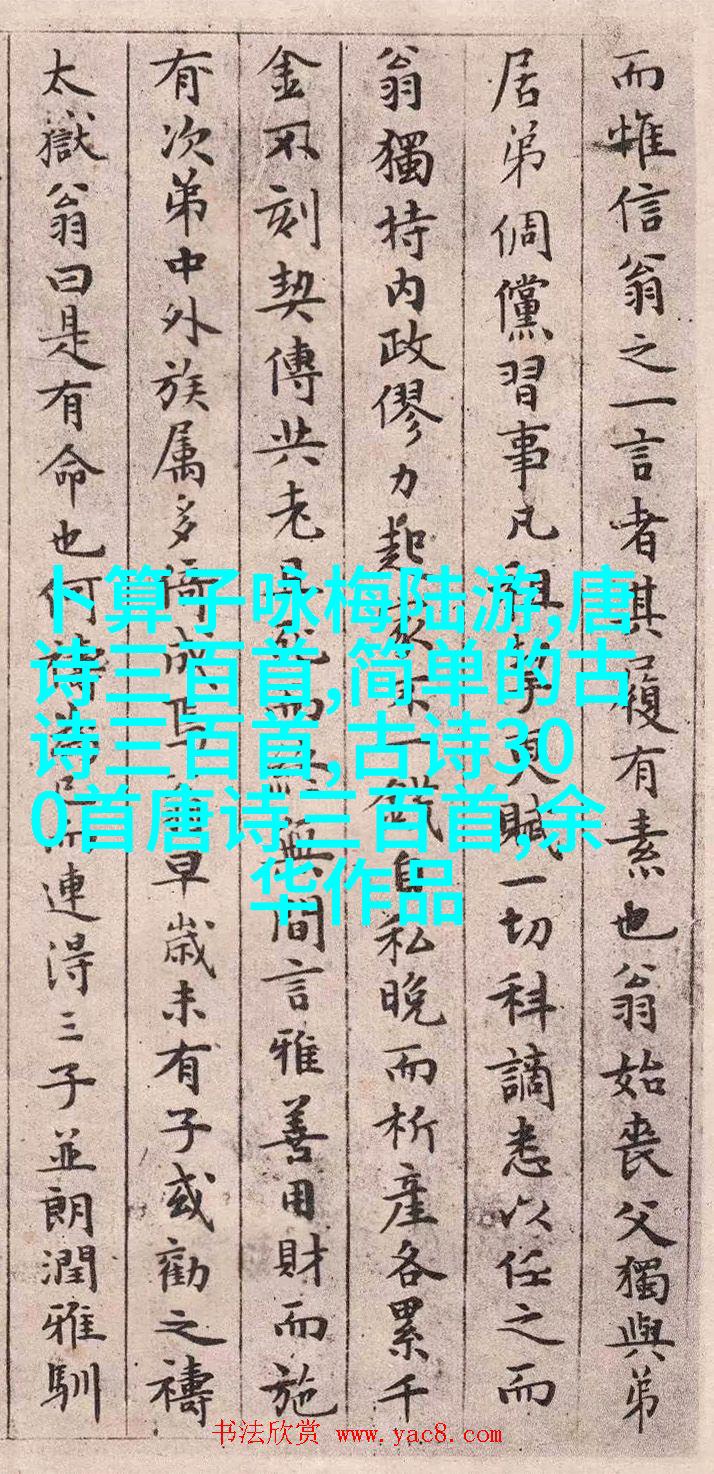 而惟信翁之一言者其履有素也翁始喪父獨與弟
居弟倜儻習事凡租事見賦一切科謫悉以任之而
翁獨持内政僇力起家不一錢自私晚而析産各累千
金不刻契傳共老且死而終無間言雅善用財而施
有次弟中外族属多倚成焉翁早歲未有子或勸之禱
太嶽翁曰是有命也何禱為已而連得三子並朗潤雅馴
卜算子咏梅陆游,唐
诗三百首,简单的古
诗三百首,古诗30
0首唐诗三百首,余
华作品
书法欣赏 www.yac8.com